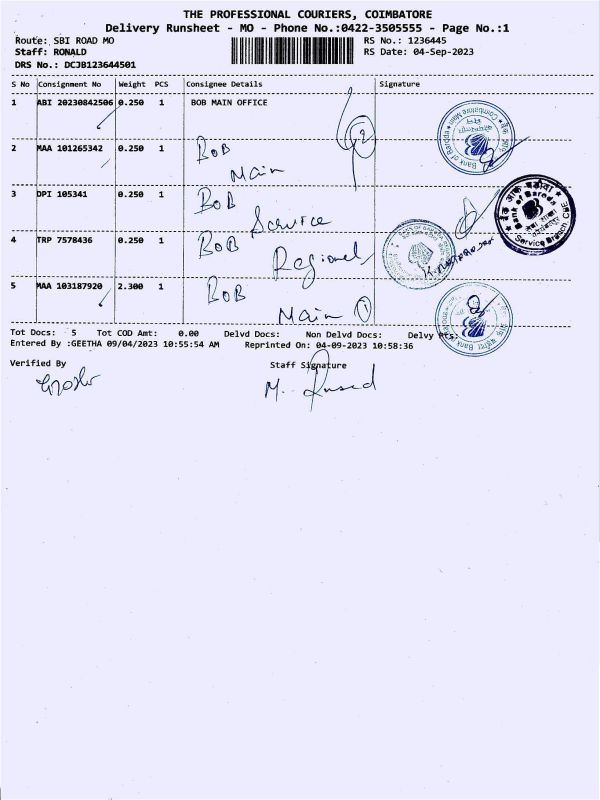 THE PROFESSIONAL COURIERS, COIMBATORE
Delivery Runsheet - MO - Phone No.:0422-3505555 - Page No.:1
Route: SBI ROAD MO RS No.: 1236445
Staff: RONALD RS Date: 04-Sep-2023
DRS No.: DCJB123644501
S No Consignment No Weight PCS Consignee Details Signature
1 ABI 20230842506 0.250 1 BOB MAIN OFFICE
2
2 MAA 101265342 0.250 1 BOB
Main
3 DPI 105341 0.250 1 BOB
Service
Bank of Baroda
Service Branch CBE
4 TRP 7578436 0.250 1 BOB
Regional
5 MAA 103187920 2.300 1 BOB
Main 1
Tot Docs: 5 Tot COD Amt: 0.00 Delvd Docs: Non Delvd Docs: Delvy Pts:
Entered By :GEETHA 09/04/2023 10:55:54 AM Reprinted On: 04-09-2023 10:58:36
Verified By Staff Signature